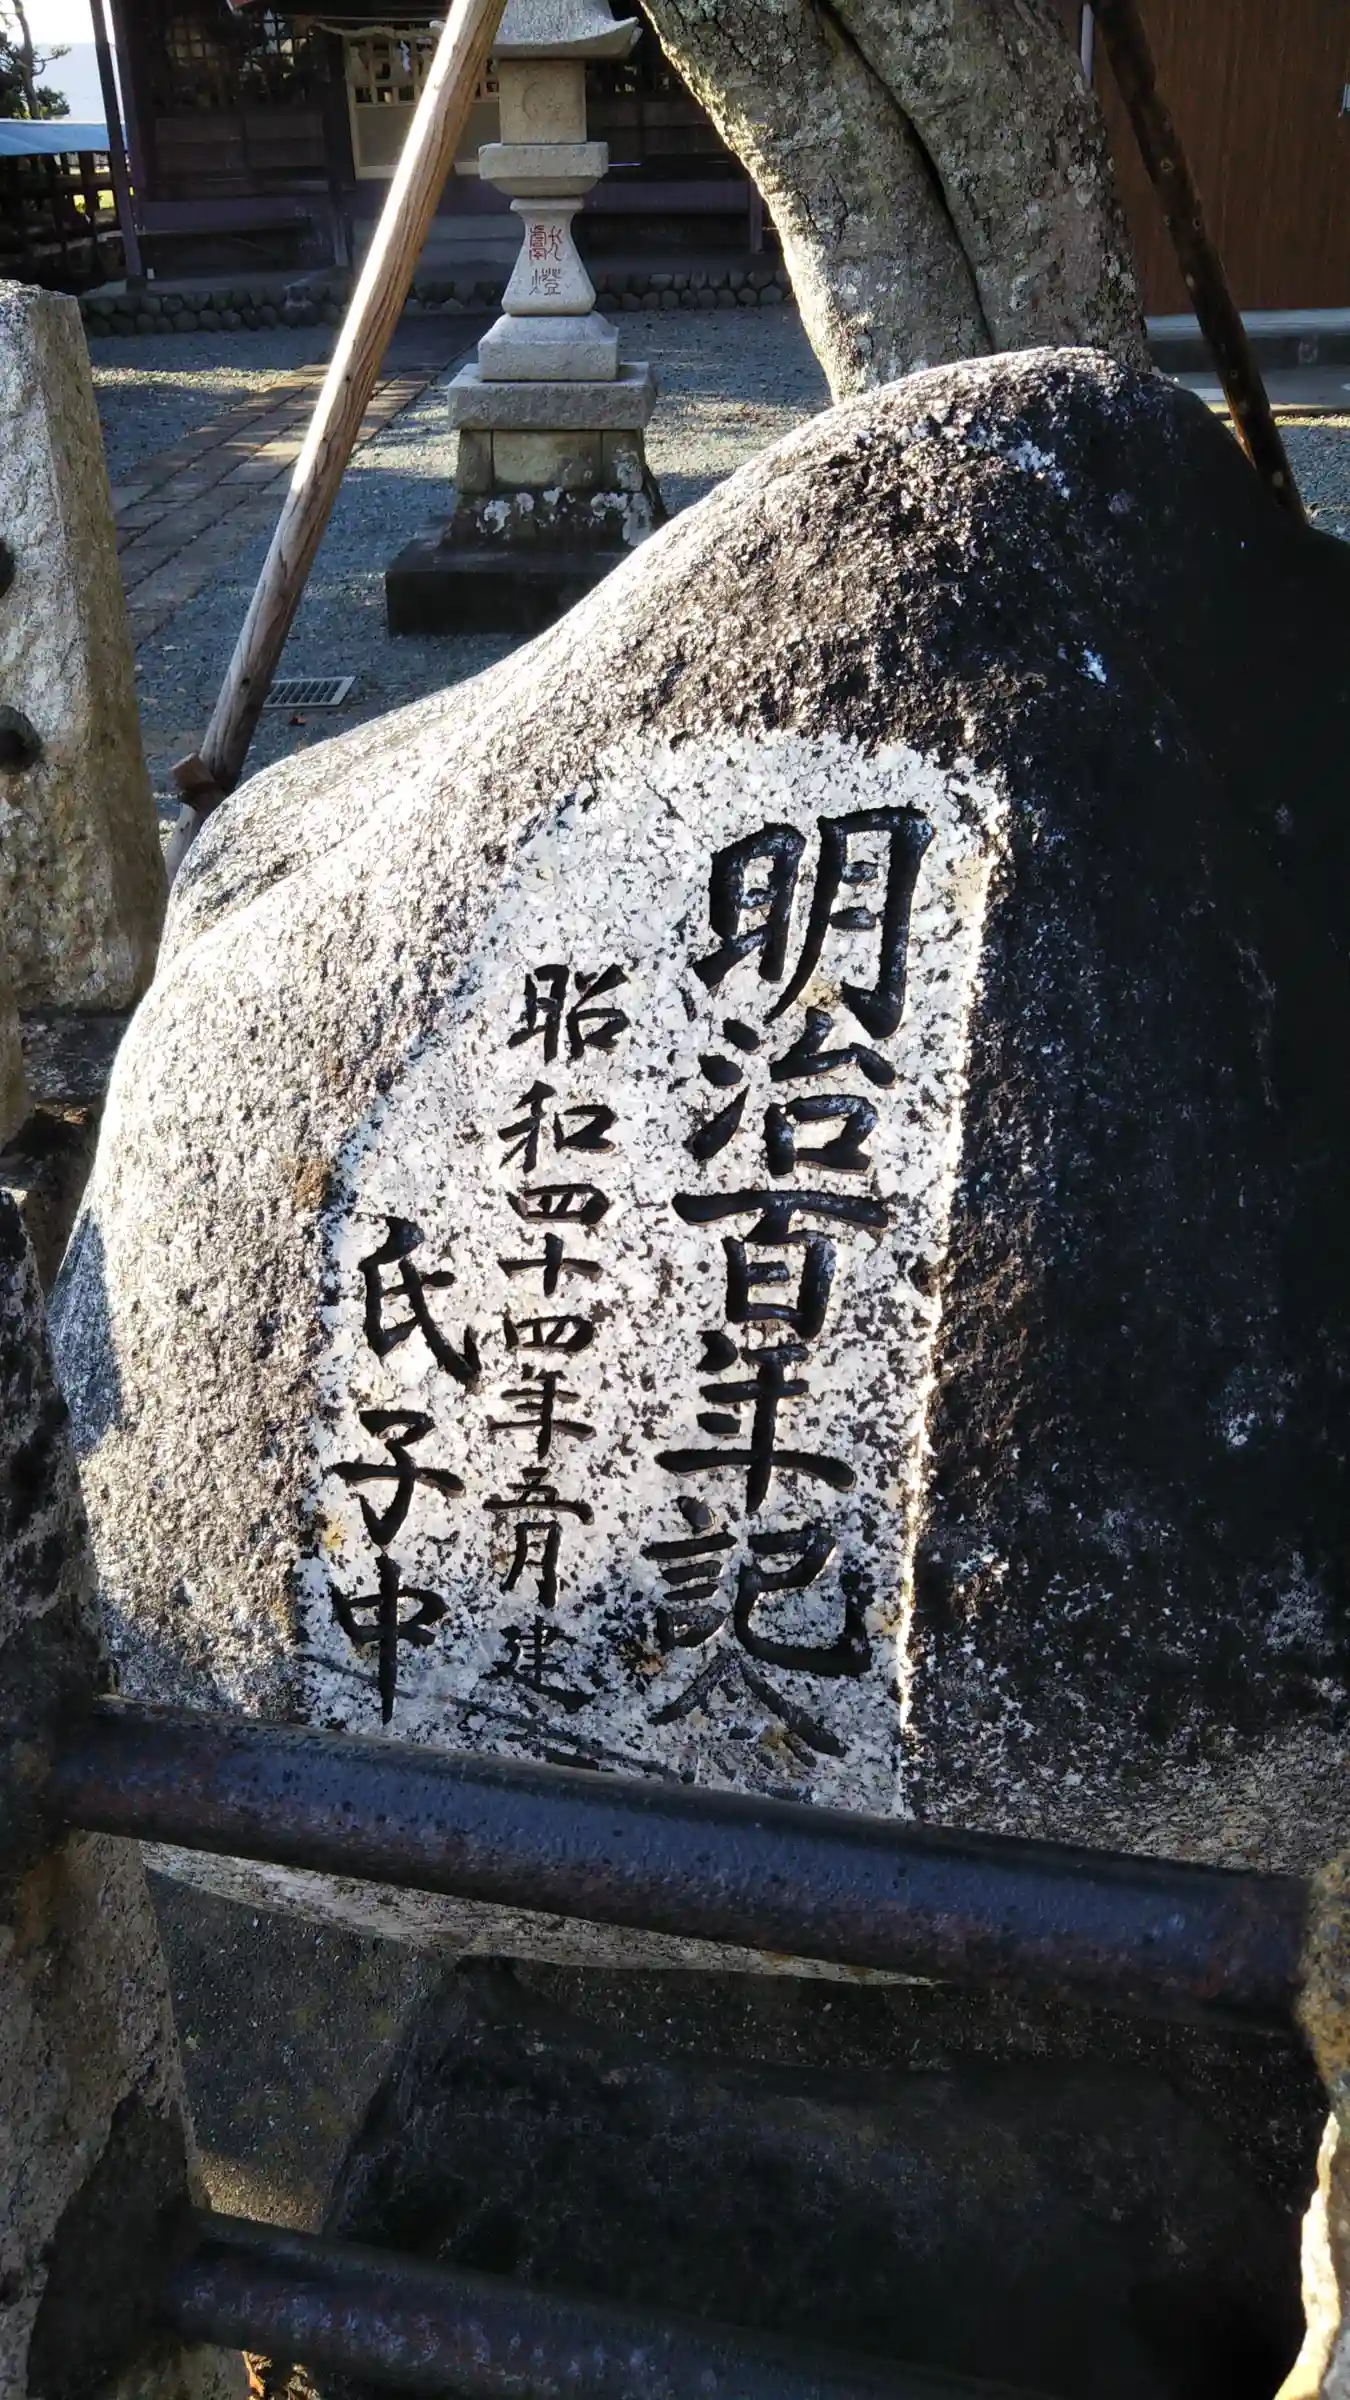 明治百年記念
昭和四十四年五月建
氏子中
献燈